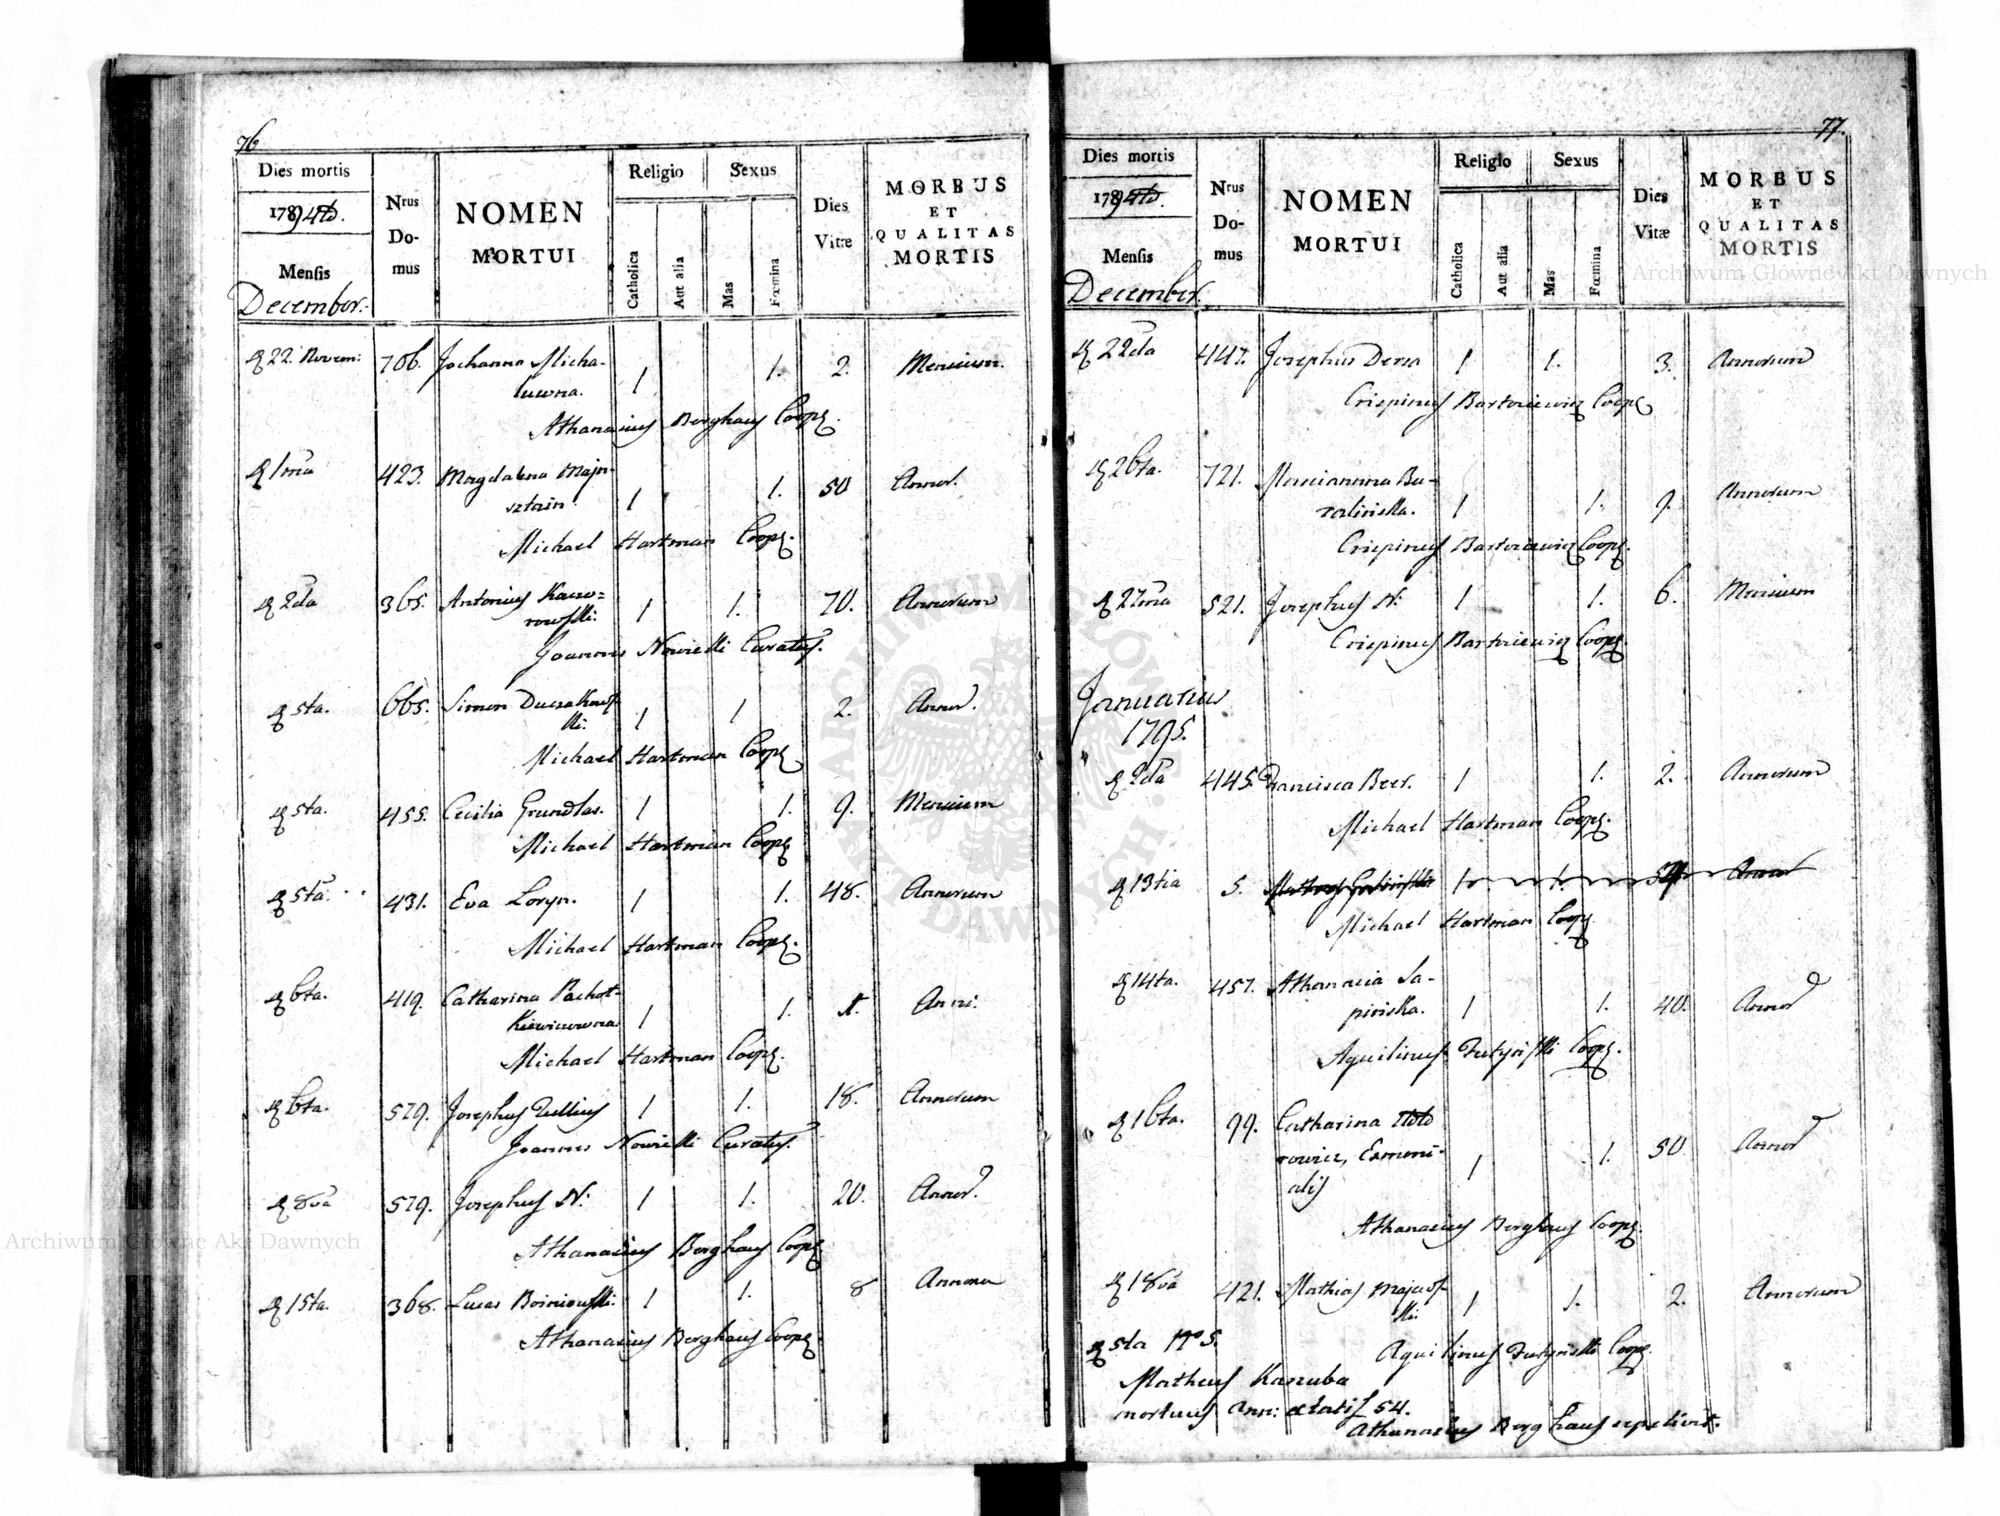 76
Dies mortis
1794to.
Mensis
December.
Nrus Domus
NOMEN MORTUI
Religio
Catholica
Aut alia
Sexus
Mas
Fœmina
Dies Vitæ
MORBUS ET QUALITAS MORTIS
22 Novem: 706. Johanna Micha-
luwna. 1 1. 2. Mensium.
Athanasius Berghaus Coop
1ma 423. Magdalena Majn-
sztain 1 1. 50 Annor.
Michael Hartman Coop.
2da 365. Antonius Kawe-
rowski: 1 1. 70. Annorum
Joannes Nowicki Curatus.
5ta. 665. Simon
ki: 1 1 2. Annor.
Michael Hartman Coop
5ta. 455. Cecilia Grundlar. 1 1. 9. Mensium
Michael Hartman Coop
5ta. 431. Eva Loryn. 1 1. 48. Annorum
Michael Hartman Coop.
6ta. 419. Catharina Pachot-
kiewiczowna 1 1. 1. Anni.
Michael Hartman Coop.
6ta. 579. Josephus Tullius 1 1. 18. Annorum
Joannes Nowicki Curatus.
8va 579. Josephus N: 1 1. 20. Annor.
Athanasius Berghaus Coop
15ta. 368. Lucas 1 1. 8 Annorum
Athanasius Berghaus Coop
77.
Dies mortis
1794to.
Mensis
December.
Nrus Domus
NOMEN MORTUI
Religio
Catholica
Aut alia
Sexus
Mas
Fœmina
Dies Vitæ
MORBUS ET QUALITAS MORTIS
22da 447. Josephus Dersa 1 1. 3. Annorum
Crispinus Bartoziewicz Coop
26ta. 721. Marcianna Bu-
ralinska. 1 1. 9. Annorum
Crispinus Bartoziewicz Coop.
27ma 521. Josephus N: 1 1. 6. Mensium
Crispinus Bartoziewicz Coop.
Januarius
1795.
2da 445. Francisca Beer. 1 1. 2. Annorum
Michael Hartman Coop.
13tia 5. 1 1. 54 Annor
Michael Hartman Coop
14ta. 457. Athanasia Sa-
pinska. 1 1. 40. Annor
Aquilinus Coop.
16ta. 99. Catharina
rowicz, Exmoni-
alis 1 1. 50 Annor
Athanasius Berghaus Coop.
18va 421. Mathias Majews-
ki: 1 1. 2. Annorum
Aquilinus Coop.
5ta No 5.
Matheus Kaszuba
mortuus Ann: etatis 54.
Athanasius Berghaus
Archiwum Główne Akt Dawnych
Archiwum Główne Akt Dawnych
ARCHIWUM GŁÓWNE AKT DAWNYCH